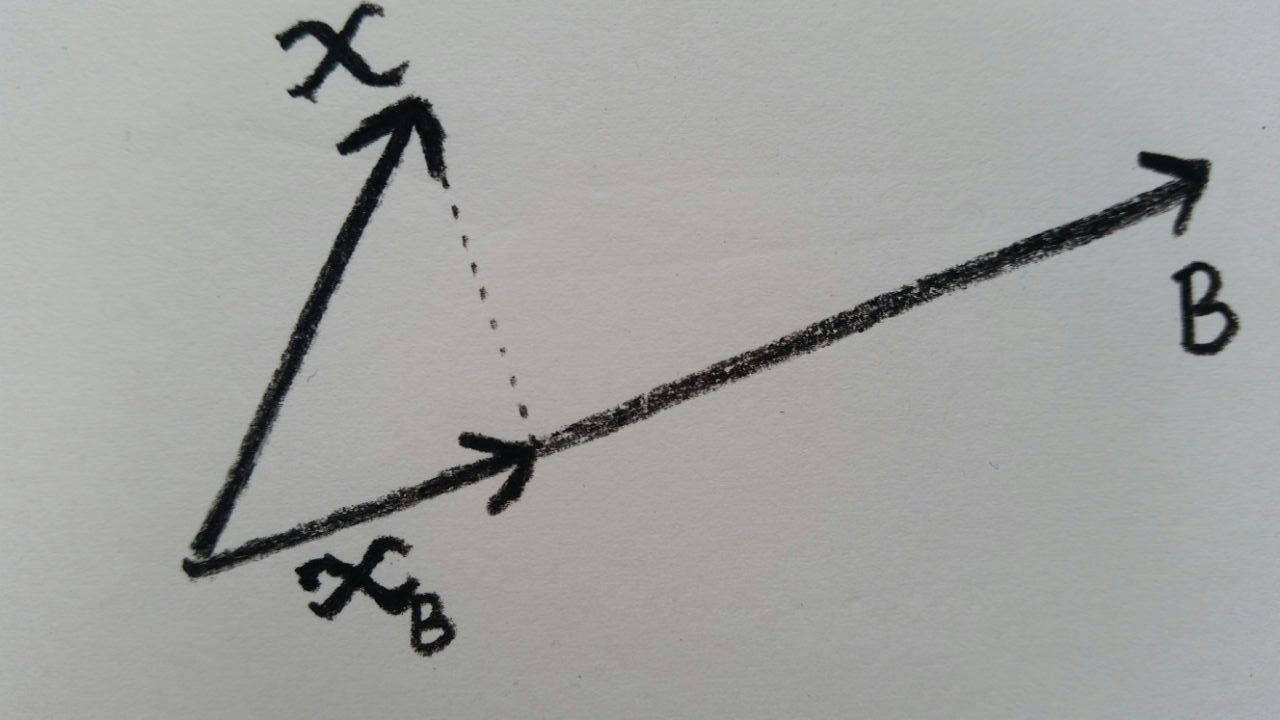 x
B
x_B